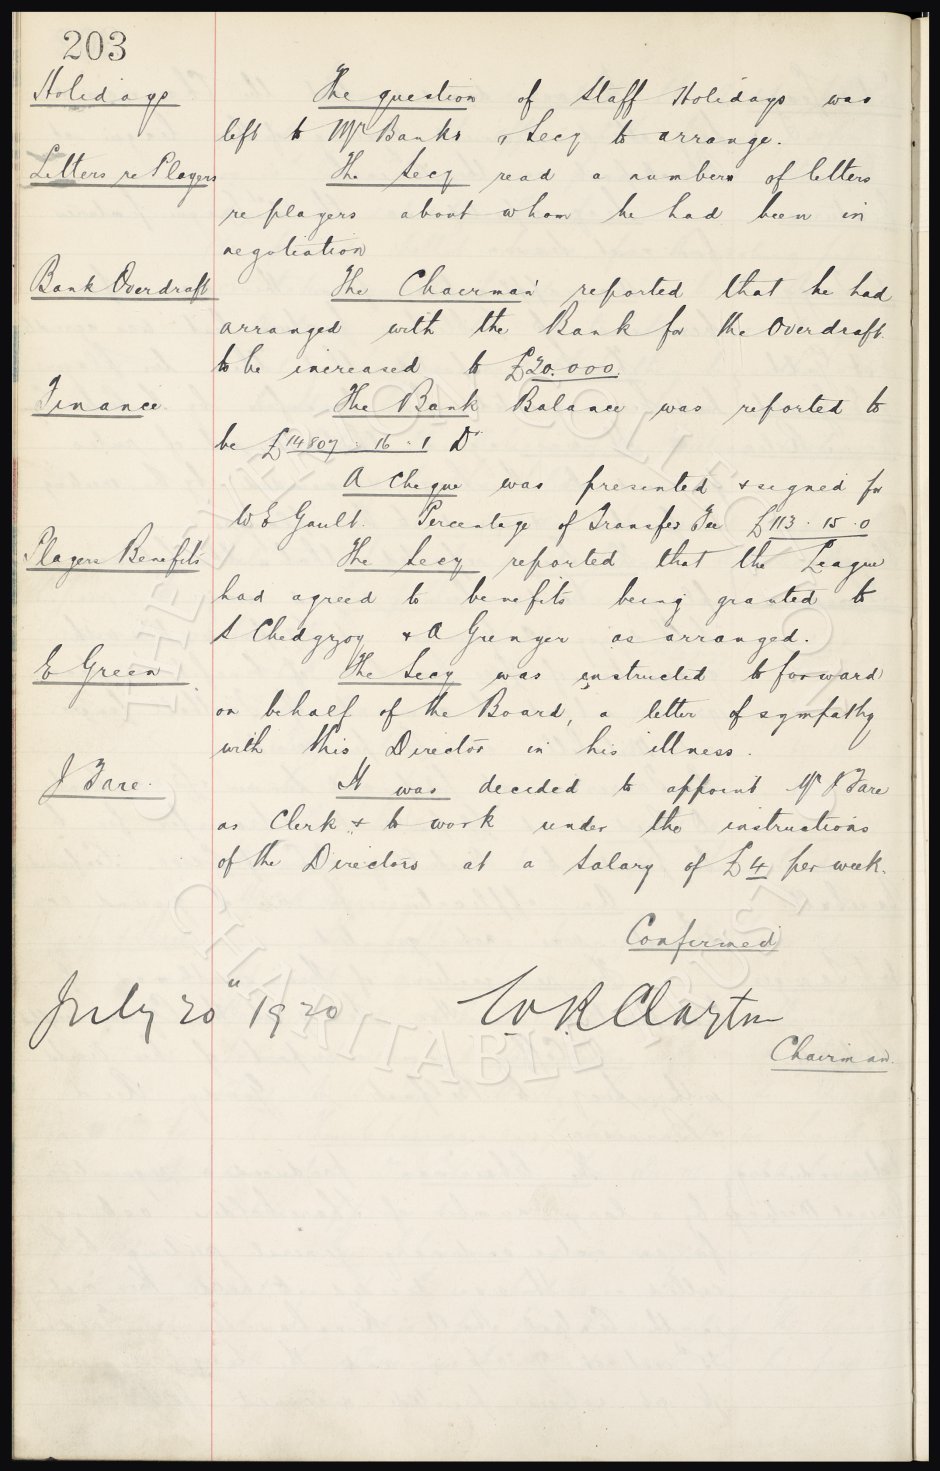 203
Holidays
The question of Staff Holidays was
left to Mr Banks & Secy to arrange.
Letters re Players
The Secy read a number of letters
re players about whom he had been in
negotiation
Bank Overdraft
The Chairman reported that he had
arranged with the Bank for the Overdraft
to be increased to £20.000.
Finance
The Bank Balance was reported to
be £14807 . 16 . 1 Dr
A Cheque was presented & signed for
W E Gault. Percentage of Transfer Fee £113 . 15 . 0
Players Benefits
The Secy reported that the League
had agreed to benefits being granted to
S Chedgzoy & A Grenyer as arranged.
E Green
The Secy was instructed to forward
on behalf of the Board, a letter of sympathy
with this Director in his illness.
J Fare.
It was decided to appoint Mr J Fare
as Clerk & to work under the instructions
of the Directors at a salary of £4 per week.
Confirmed
July 20" 1920
W R Clayton
Chairman.
THE EVERTON COLLECTION
CHARITABLE TRUST